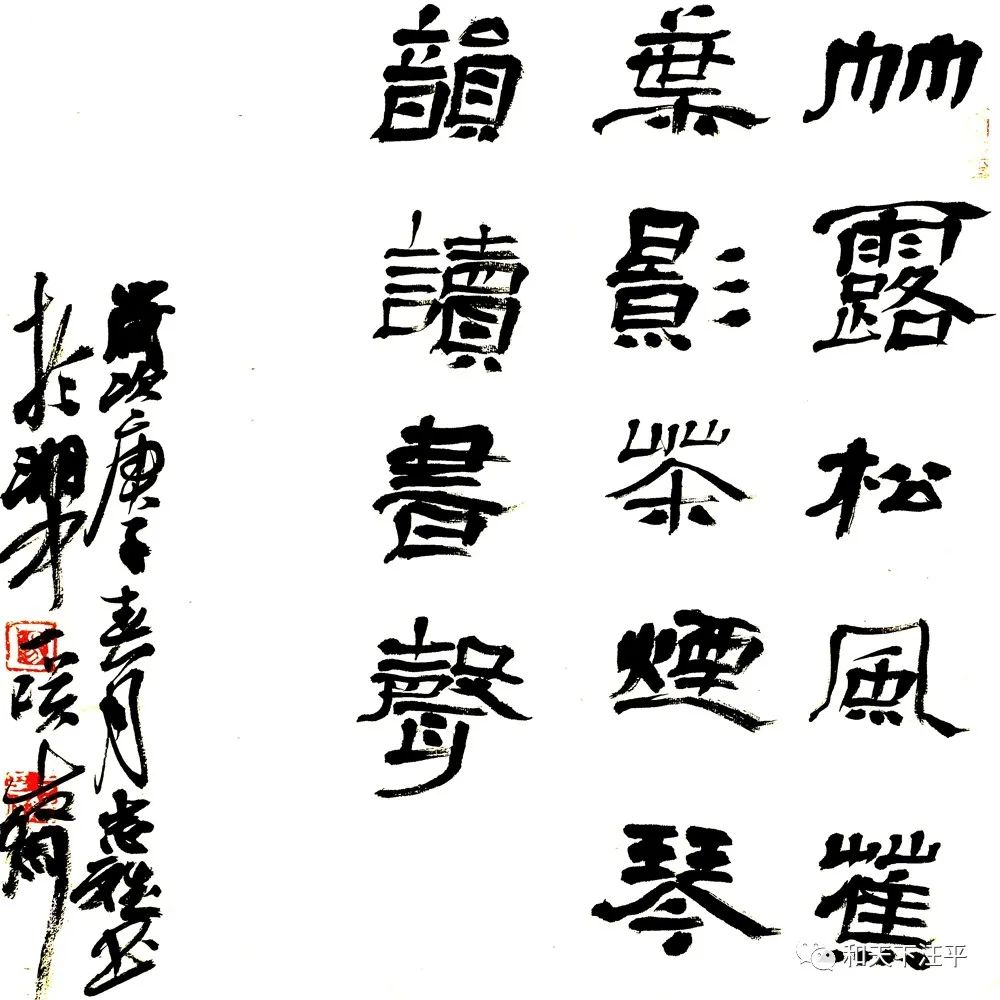 竹露松風蕉
葉影茶煙琴
韻讀書聲
歲次庚子春月尚雅書
於湖
和天下汪平